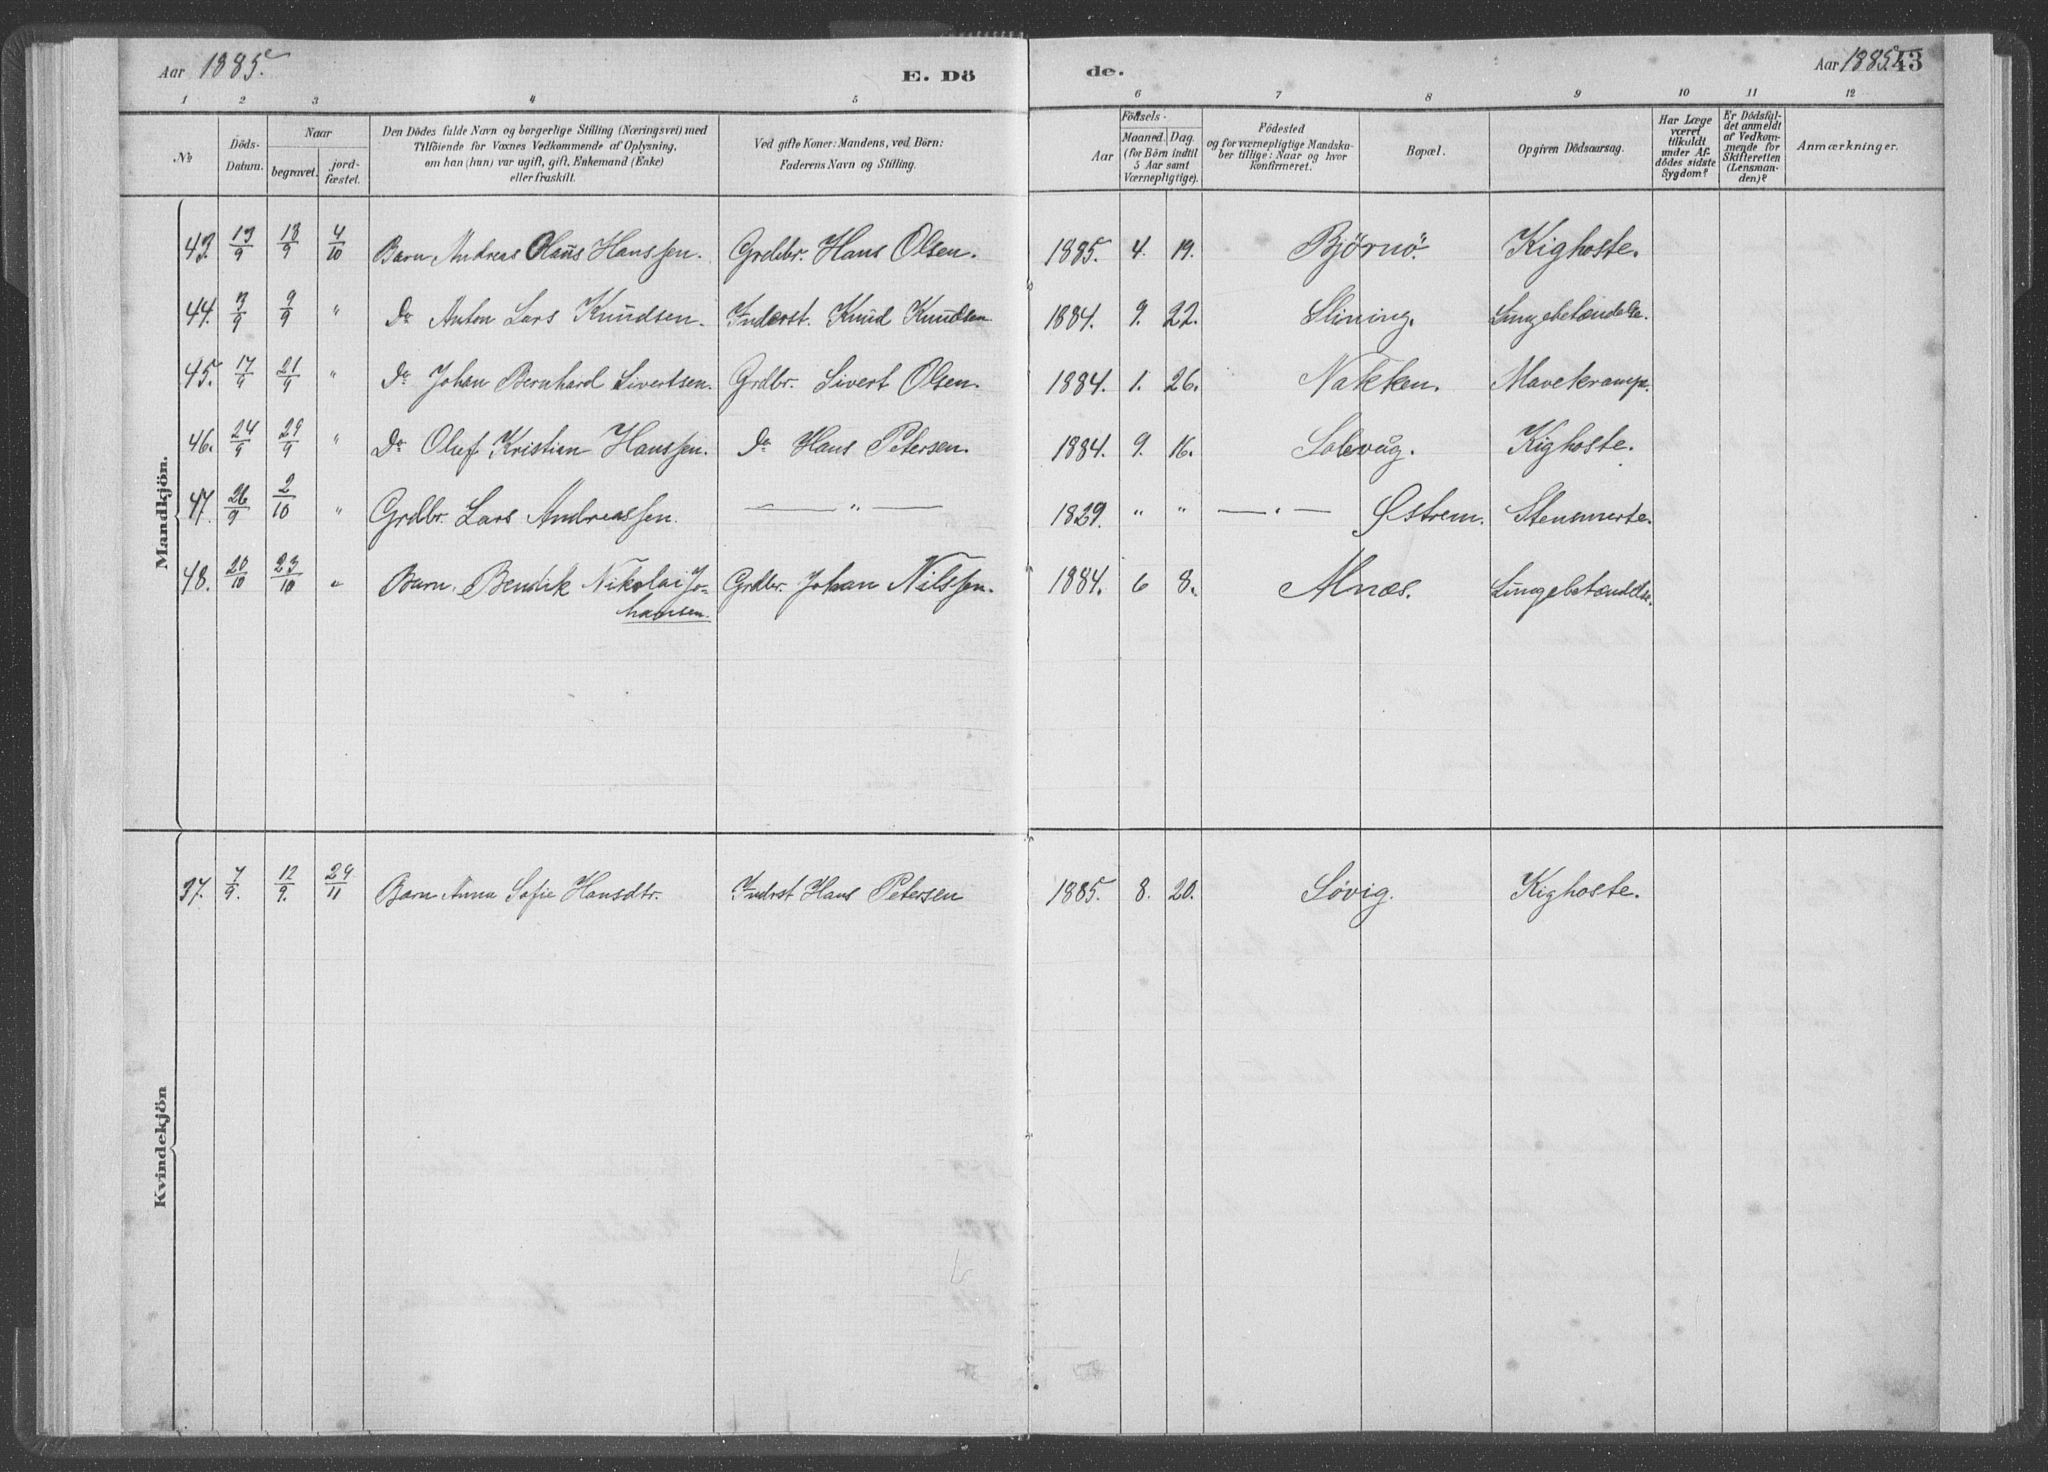 Aar 1885.
E. Dö
de.
Aar 1885.
43
1 2 3 4 5 6 7 8 9 10 11 12
No
Döds-Datum.
Naar
begravet.
jord-fæstet.
Den Dödes fulde Navn og borgerlige Stilling (Næringsvei) med
Tilföiende for Voxnes Vedkommende af Oplysning,
om han (hun) var ugift, gift, Enkemand (Enke)
eller fraskilt.
Ved gifte Koner: Mandens, ved Börn:
Faderens Navn og Stilling.
Födsels-
Aar
Maaned. Dag.
(for Börn indtil
5 Aar samt
Værnepligtige).
Födested
og for værnepligtige Mandska-
ber tillige: Naar og hvor
konfirmeret.
Bopæl.
Opgiven Dödsaarsag.
Har Læge
været
tilkaldt
under Af-
dödes sidste
Sygdom?
Er Dödsfal-
det anmeldt
af Vedkom-
mende for
Skifteretten
(Lensman-
den)?
Anmærkninger.
Mandkjön.
43. 13/9 18/9 4/10 Barn Andreas Olaus Hanssen. Grdbr. Hans Olsen. 1885. 4. 19. Bjørnø. Kighoste.
44. 3/9 9/9 " Do Anton Lars Knudsen. Inderst. Knud Knudsen 1884. 9. 22. Slining. Lungebetændelse.
45. 17/9 21/9 " Do Johan Bernhard Sivertsen. Grdbr. Sivert Olsen. 1884. 1. 26. Nakken. Mavekrampe.
46. 24/9 29/9 " Do Oluf Kristian Hanssen. Do Hans Petersen. 1884. 9. 16. Solevåg. Kighoste.
47. 26/9 2/10 " Grdbr. Lars Andreassen. — " — 1829. " " — " — Østrem. Stensmerte.
48. 20/10 23/10 " Barn. Bendik Nikolai Jo- Grdbr. Johan Nilssen. 1884. 6 8. Alnæs. Lungebetændelse.
hansen.
Kvindekjön
37. 7/9. 12/9. 29/11 Barn Anna Sofie Hansdtr. Inderst Hans Petersen 1885. 8. 20. Søvig. Kighoste.